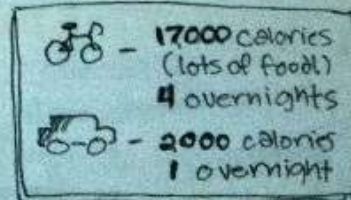 - 17000 calories
(lots of food!)
4 overnights
- 2000 calories
1 overnight